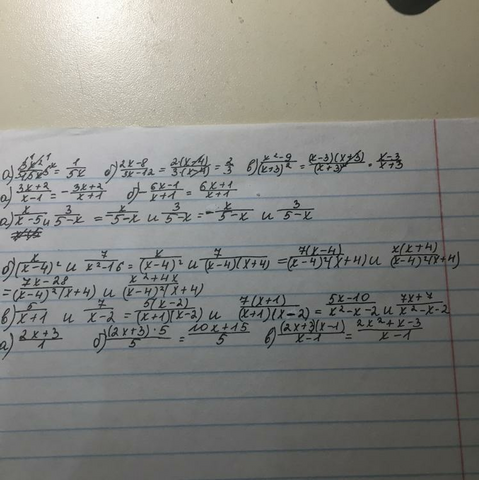 а) 3x²/15x³ = 1/5x б) 2x-8/3x-12 = 2(x-4)/3(x-4) = 2/3 в) x²-9/(x+3)² = (x-3)(x+3)/(x+3)² = x-3/x+3
а) 3x+2/x-1 = -3x+2/x+1 б) -6x-1/x+1 = 6x+1/x+1
а) x/x-5 и 3/5-x = x/5-x и 3/5-x = -x/5-x и 3/5-x
б) x/(x-4)² и 7/x²-16 = x/(x-4)² и 7/(x-4)(x+4) = 7(x-4)/(x-4)²(x+4) и x(x+4)/(x-4)²(x+4)
= 7x-28/(x-4)²(x+4) и x²+4x/(x-4)²(x+4)
в) 5/x+1 и 7/x-2 = 5(x-2)/(x+1)(x-2) и 7(x+1)/(x+1)(x-2) = 5x-10/x²-x-2 и 7x+7/x²-x-2
а) 2x+3/1 б) (2x+3)·5/5 = 10x+15/5 в) (2x+3)(x-1)/x-1 = 2x²+x-3/x-1